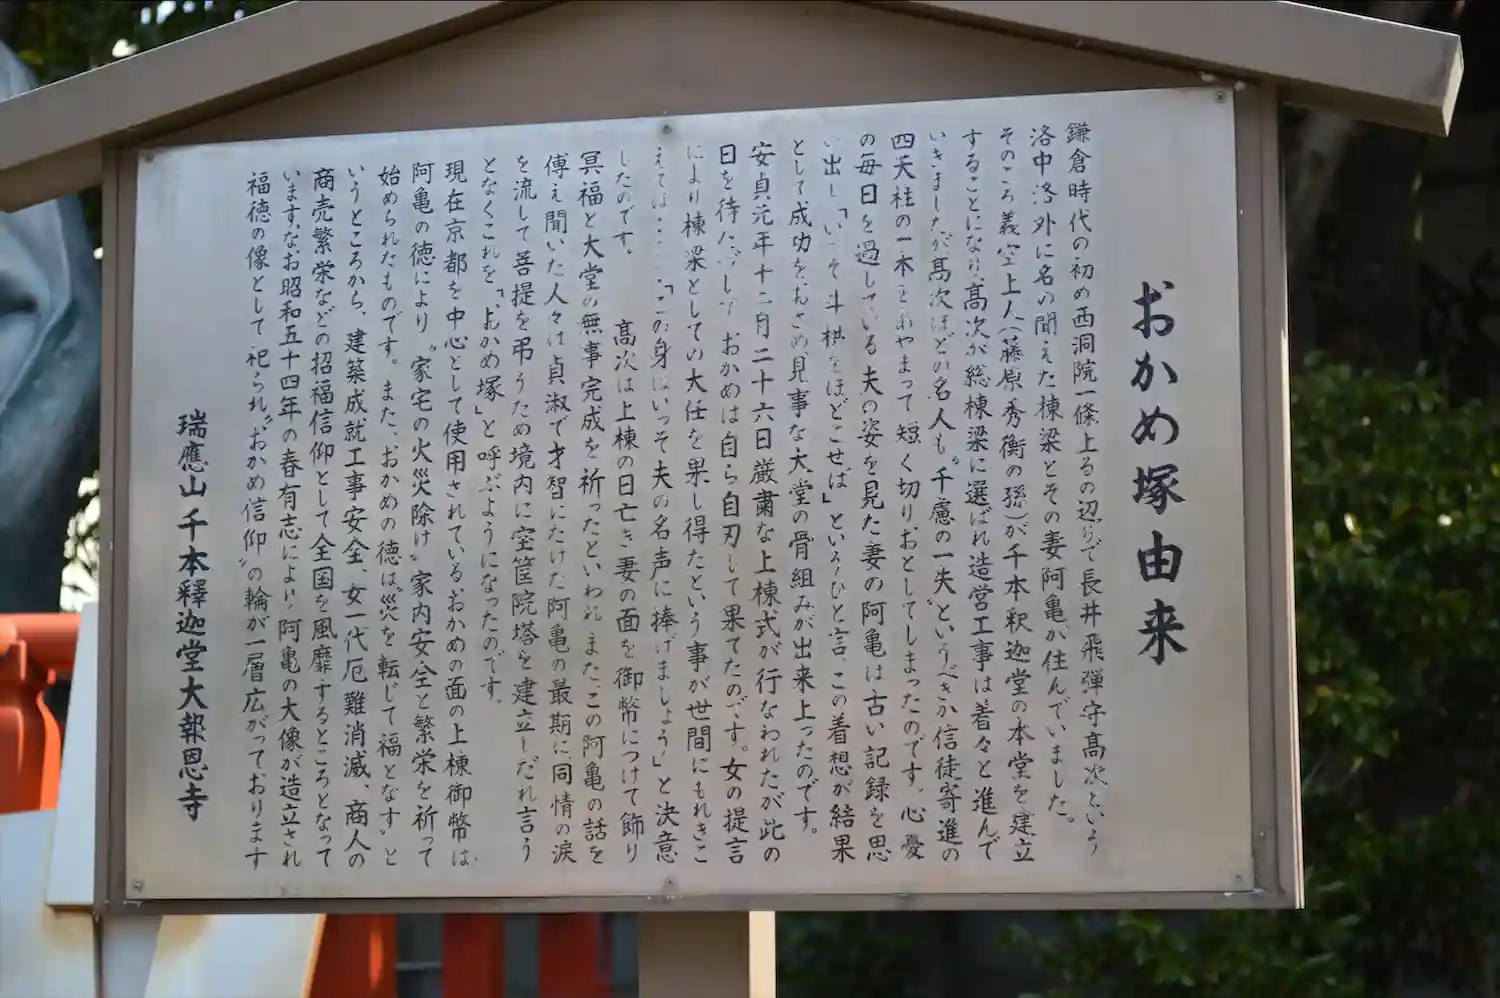 おかめ塚由来
鎌倉時代の初め西洞院一條上るの辺りで長井飛弾守高次という
洛中洛外に名の聞えた棟梁とその妻阿亀が住んでいました。
そのころ義空上人(藤原秀衡の孫)が千本釈迦堂の本堂を建立
することになり、高次が総棟梁に選ばれ造営工事は着々と進んで
いきましたが高次ほどの名人も〝千慮の一失〟というべきか信徒寄進の
四天柱の一本をあやまって短く切りおとしてしまったのです。心憂
の毎日を過している夫の姿を見た妻の阿亀は古い記録を思
い出し「いっそ斗栱をほどこせば」というひと言、この着想が結果
として成功をおさめ見事な大堂の骨組みが出来上ったのです。
安貞元年十二月二十六日厳粛な上棟式が行なわれたが此の
日を待たずして、おかめは自ら自刃して果てたのです。女の提言
により棟梁としての大任を果し得たという事が世間にもれきこ
えては‥‥「この身はいっそ夫の名声に捧げましょう」と決意
したのです。 高次は上棟の日亡き妻の面を御幣につけて飾り
冥福と大堂の無事完成を祈ったといわれ、またこの阿亀の話を
傅え聞いた人々は貞淑で才智にたけた阿亀の最期に同情の涙
を流して菩提を弔うため境内に宝筐院塔を建立しだれ言う
となくこれを「おかめ塚」と呼ぶようになったのです。
現在京都を中心として使用されているおかめの面の上棟御幣は
阿亀の徳により〝家宅の火災除け〟家内安全と繁栄を祈って
始められたものです。また、おかめの徳は〝災を転じて福となす〟と
いうところから、建築成就工事安全、女一代厄難消滅、商人の
商売繁栄などの招福信仰として全国を風靡するところとなって
います。なお昭和五十四年の春有志により阿亀の大像が造立され
福徳の像として祀られ〝おかめ信仰〟の輪が一層広がっております
瑞應山千本釋迦堂大報恩寺